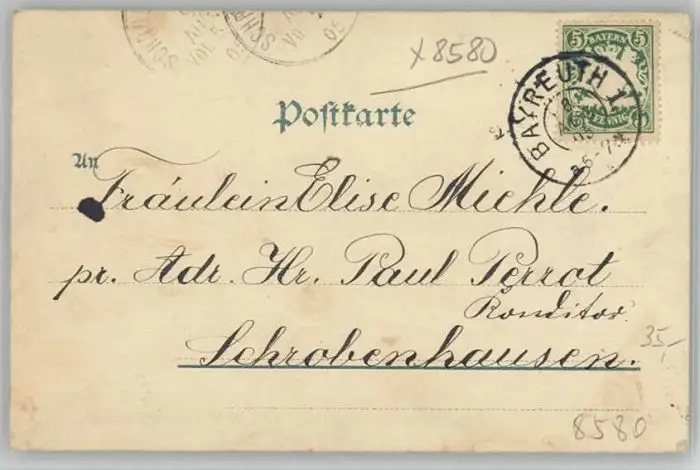 x 8580
BAYERN
5 5
BAYREUTH I
Postkarte
An
Fräulein Elise Miehle.
pr. Adr. Hr. Paul Perrot
Konditor
Schrobenhausen.
35,-
8580